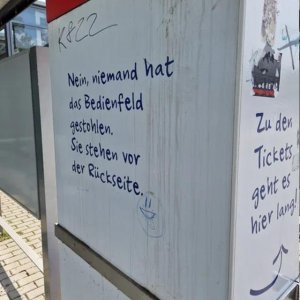 K822
Nein, niemand hat
das Bedienfeld
gestohlen.
Sie stehen vor
der Rückseite.
Zu den
Tickets
geht es
hier lang!